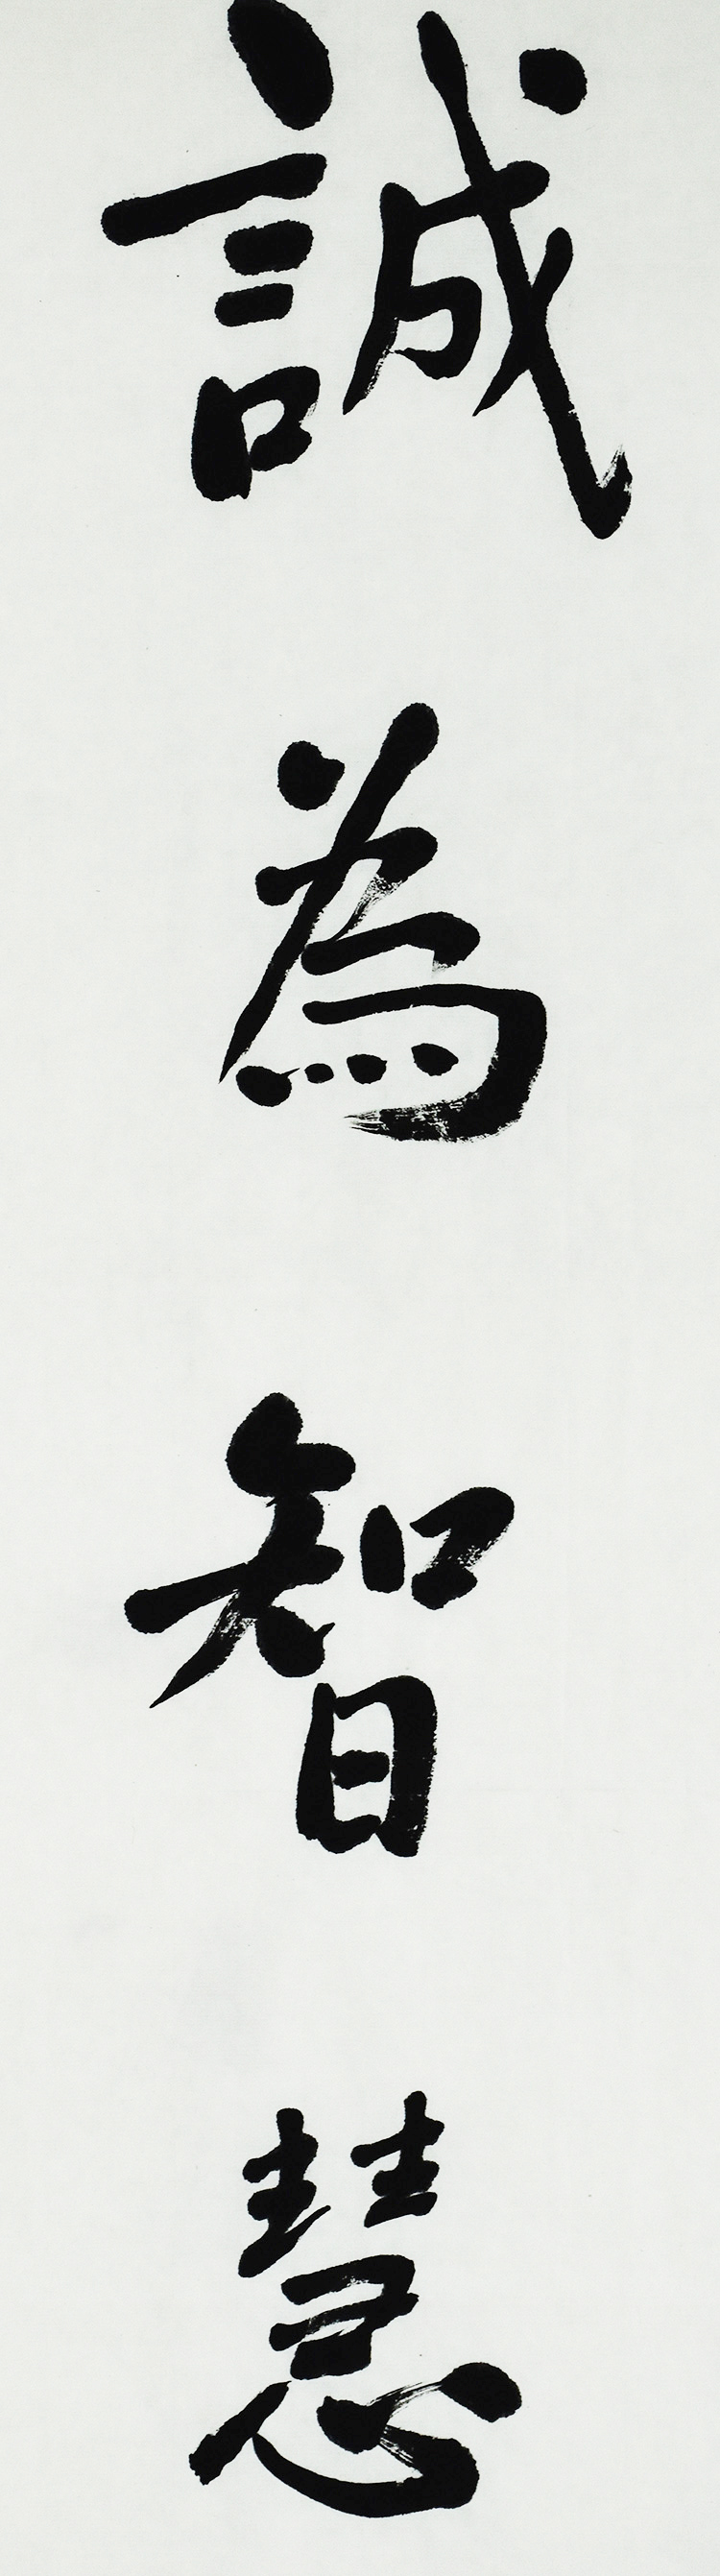 誠為智慧